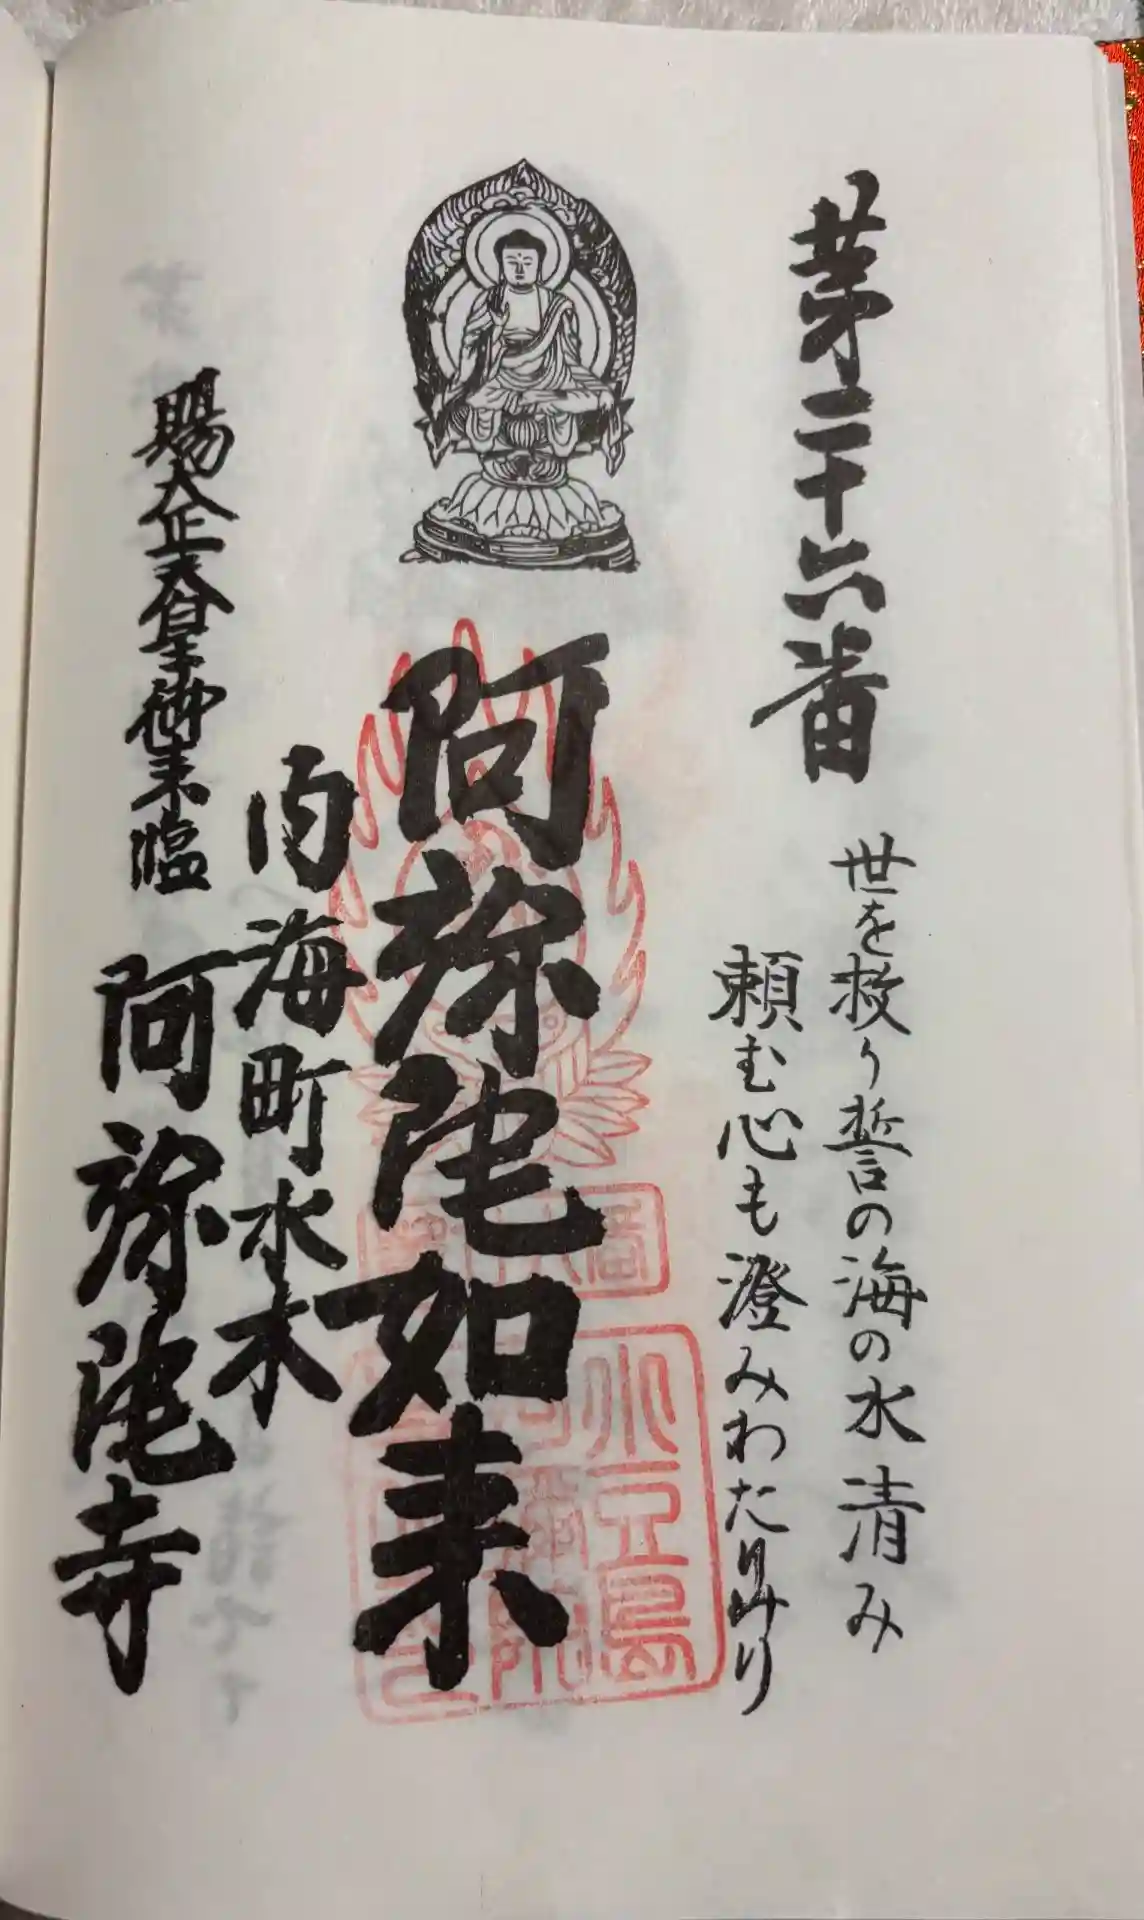 第二十六番
世を救う誓の海の水清み
頼む心も澄みわたりけり
阿弥陀如来
内海町水木
賜大正天皇御来臨
阿弥陀寺